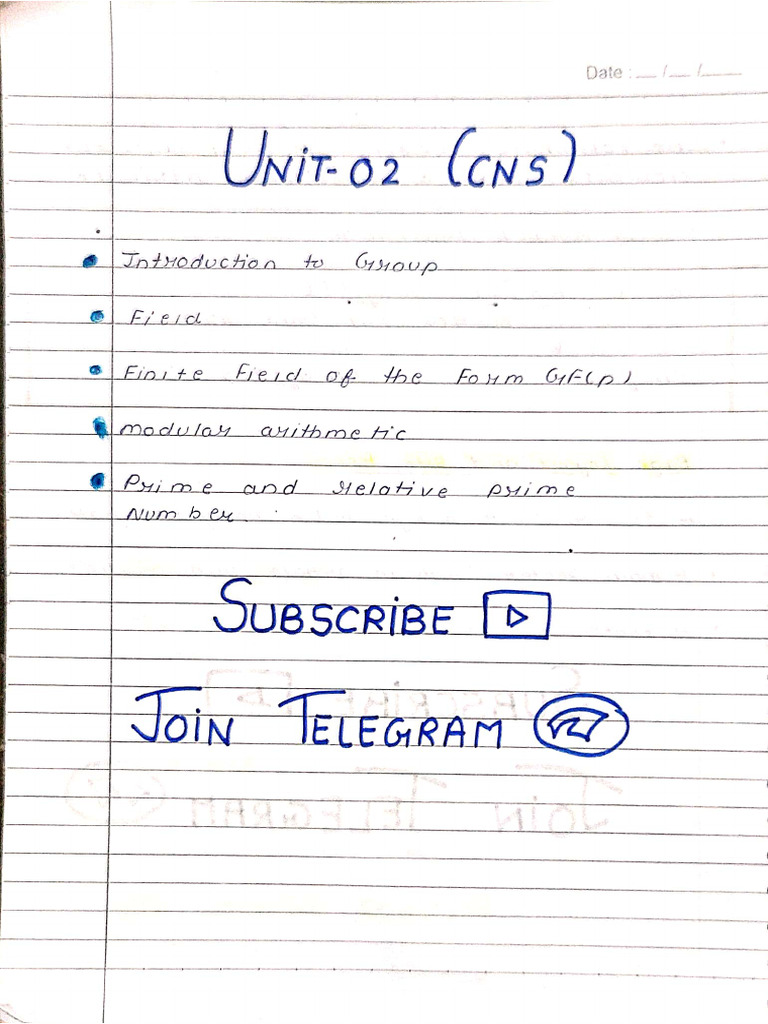 Date : __ / __ / ____
UNIT-02 (CNS)
Introduction to Group
Field
Finite Field of the Form GF(p)
modular arithmetic
Prime and relative prime
Number.
SUBSCRIBE
JOIN TELEGRAM